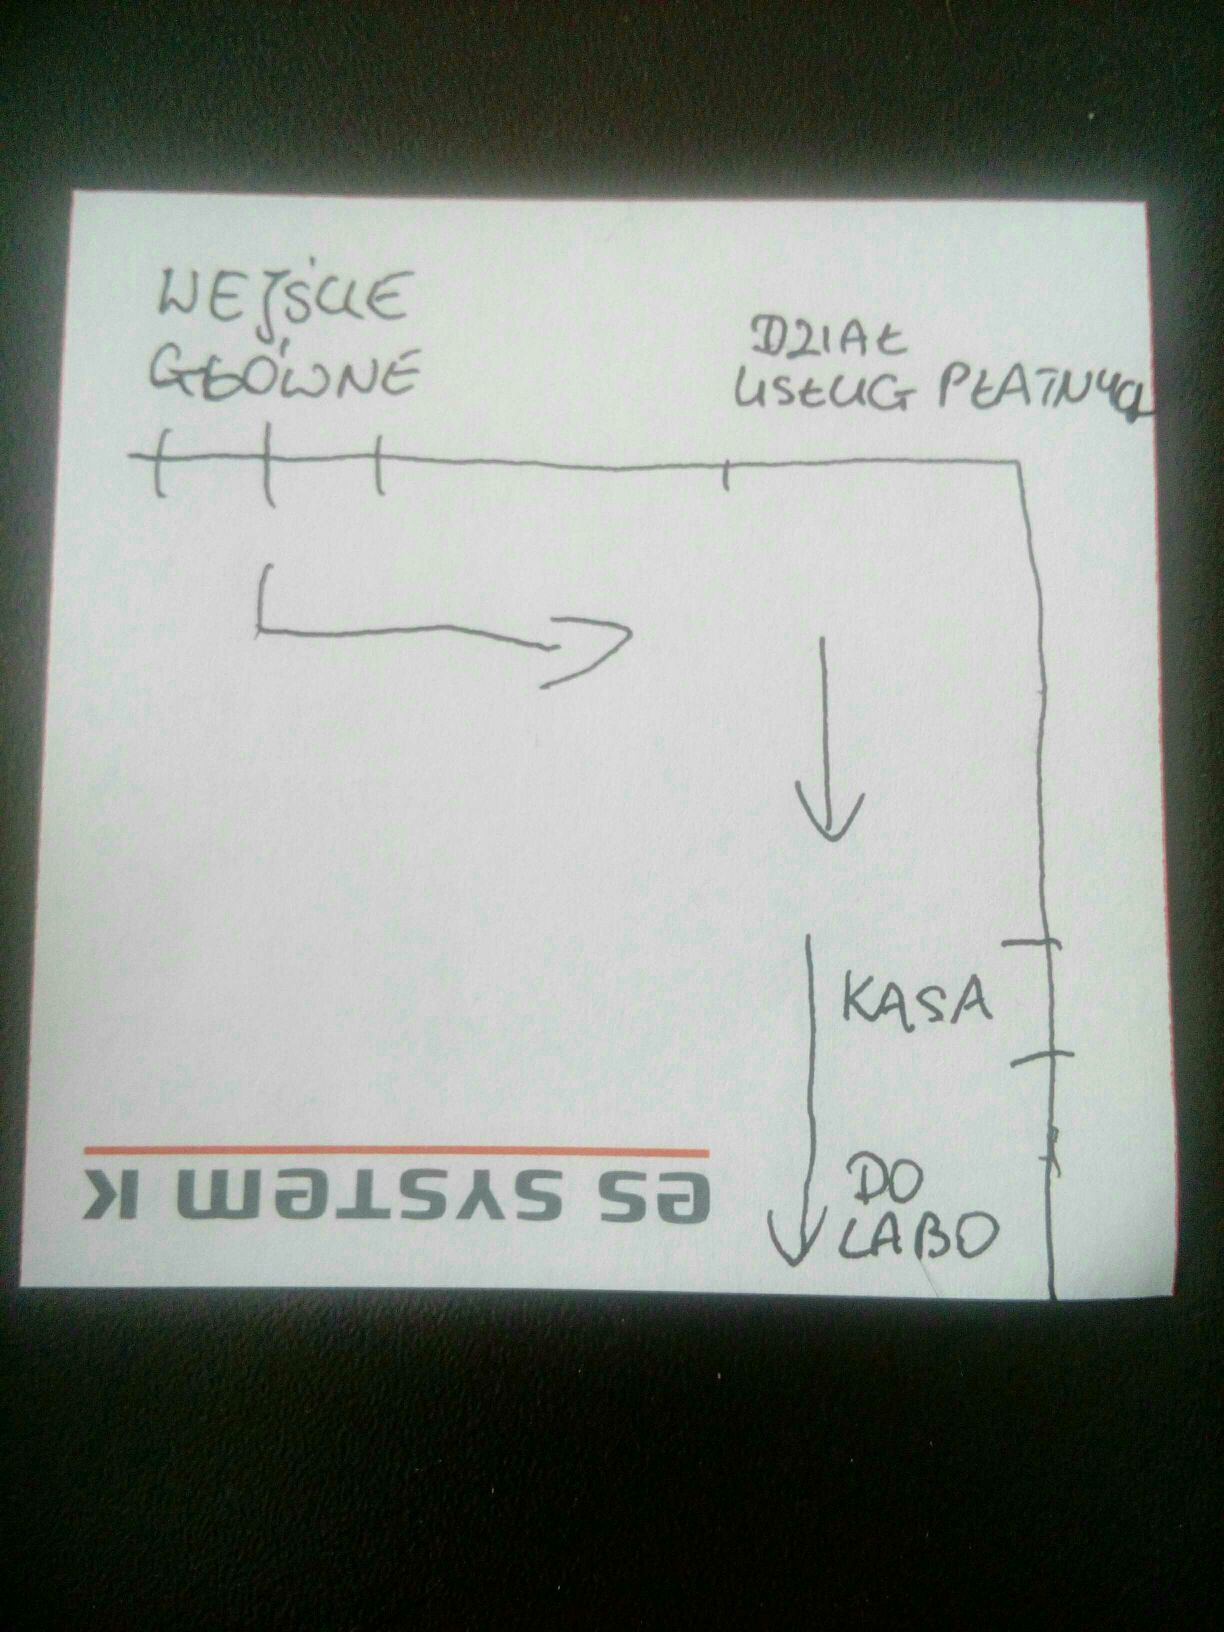 WEJŚCIE
GŁÓWNE
DZIAŁ
USŁUG PŁATNYCH
KASA
DO
LABO
es system k